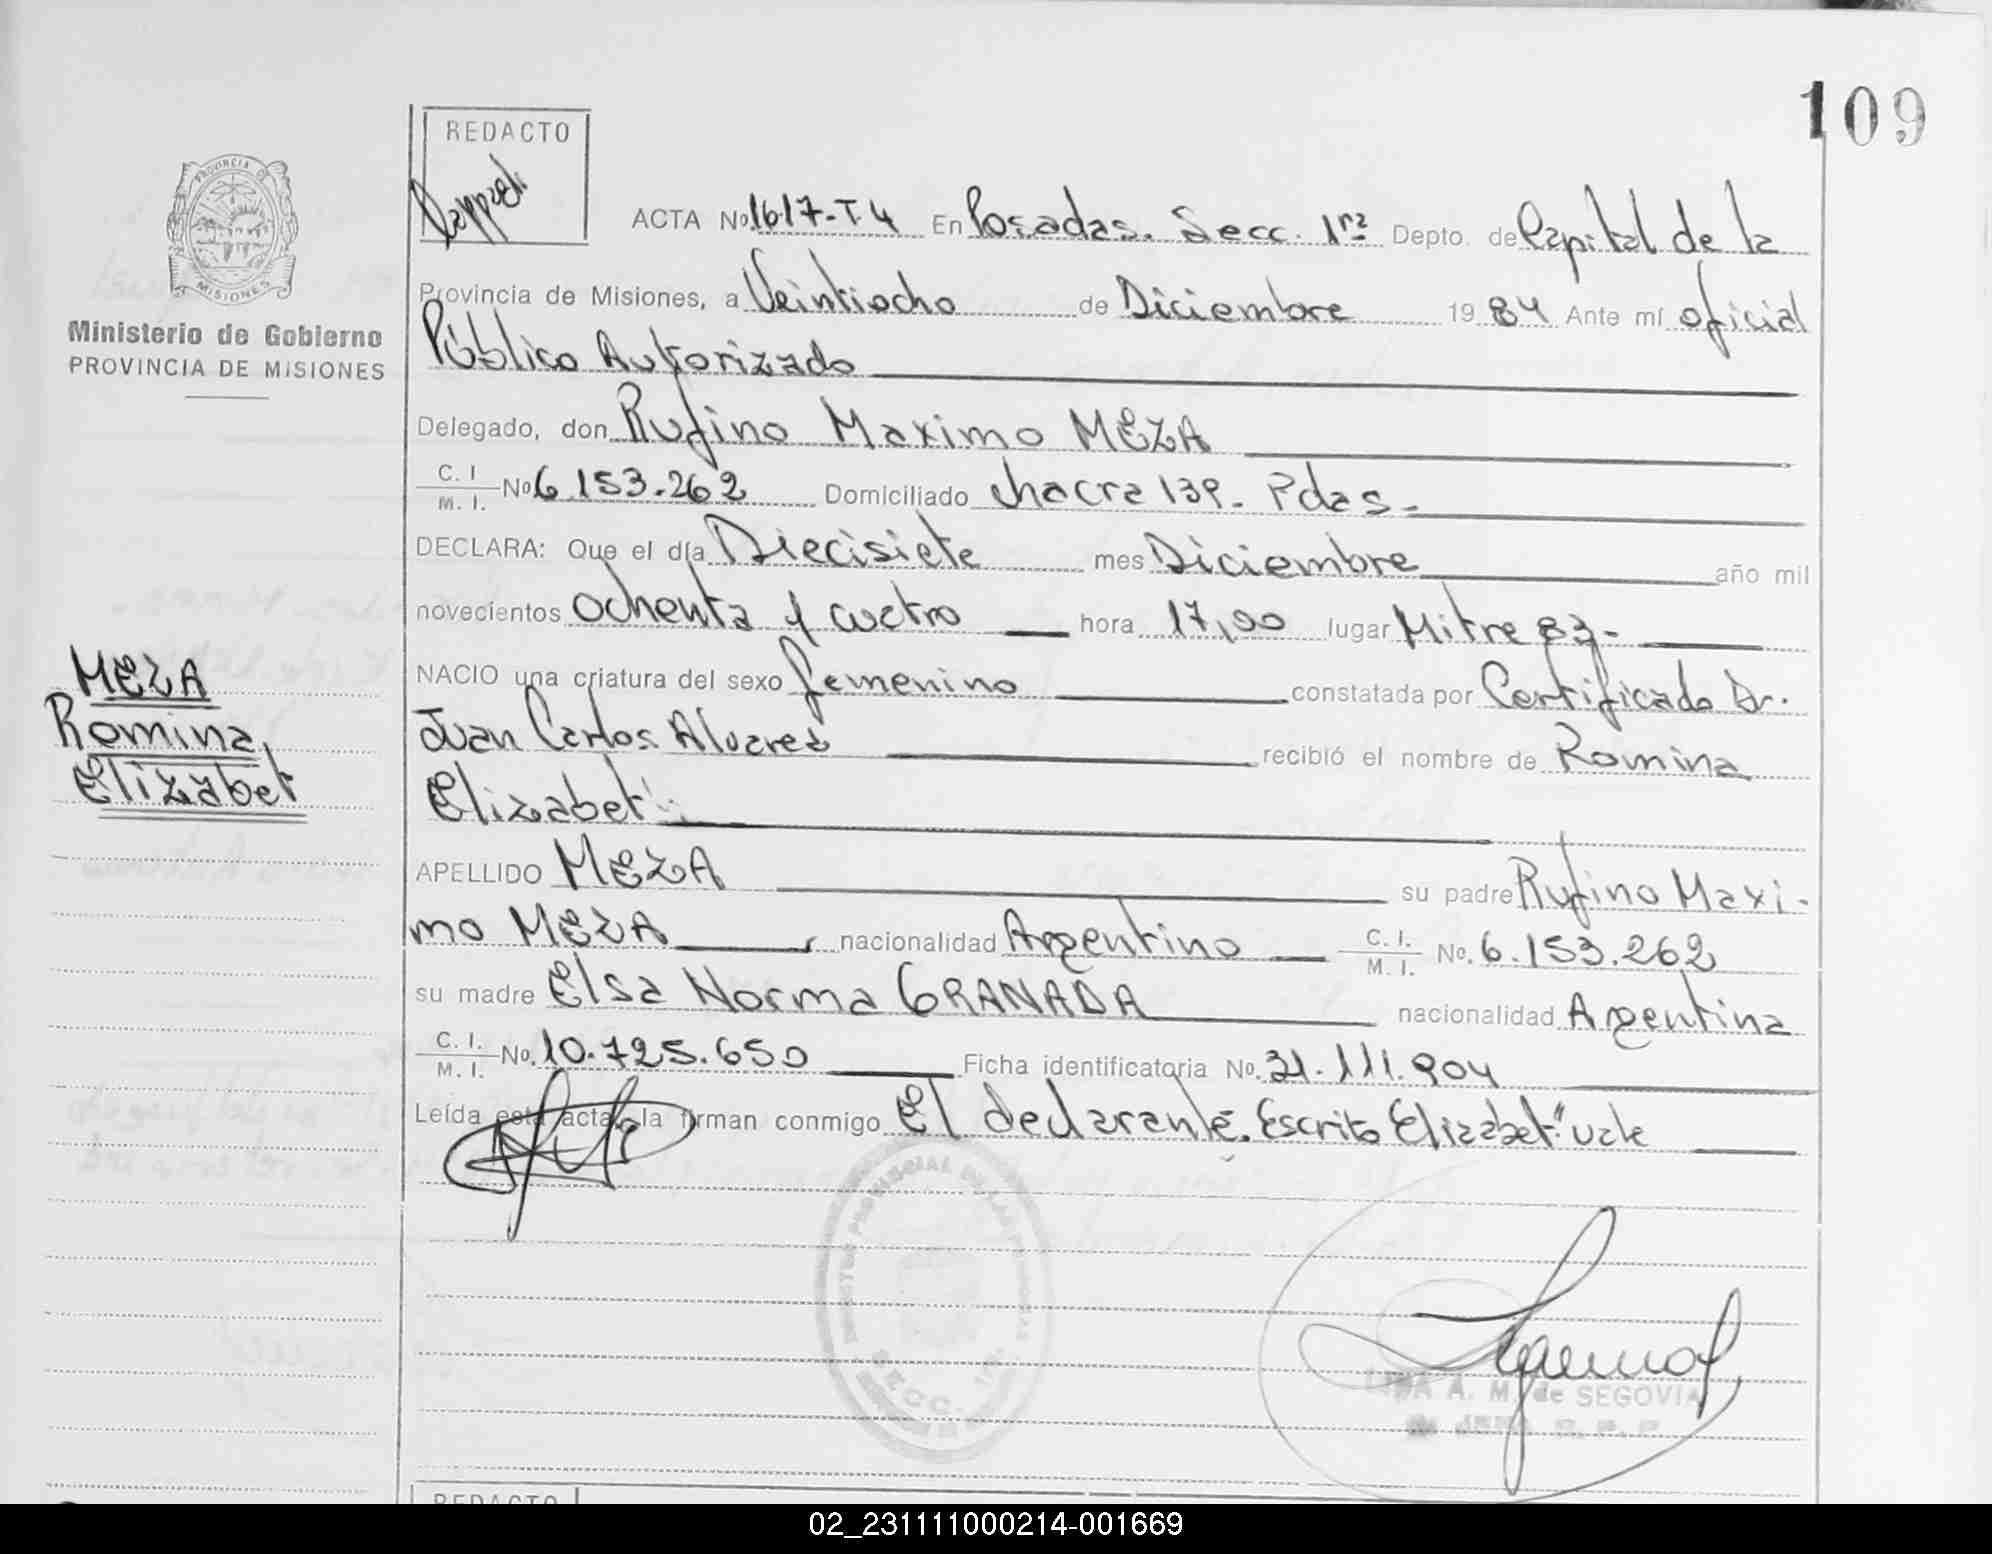 109
REDACTO
PROVINCIA DE
MISIONES
Ministerio de Gobierno
PROVINCIA DE MISIONES
ACTA No 1617-T.4 En Posadas. Secc. 1ra Depto. de Capital de la
Provincia de Misiones, a Veintiocho de Diciembre 1984 Ante mí oficial
Público Autorizado
Delegado, don Rufino Maximo MEZA
C. I. M. I. No 6.153.262 Domiciliado chacra 139. Pdas.
DECLARA: Que el día Diecisiete mes Diciembre año mil
novecientos ochenta y cuatro hora 17,00 lugar Mitre 83-
NACIO una criatura del sexo femenino constatada por Certificado Dr.
Juan Carlos Alvarez recibió el nombre de Romina
Elizabet".
APELLIDO MEZA su padre Rufino Maxi-
mo MEZA nacionalidad Argentino C. I. M. I. No. 6.153.262
su madre Elsa Norma GRANADA nacionalidad Argentina
C. I. M. I. No. 10.725.650 Ficha identificatoria No. 31.111.904
Leída esta acta, la firman conmigo El declarante. Escrito Elizabet" vale
MEZA
Romina
Elizabet
SECC. 1ra.
A. M. de SEGOVIA
REDACTO
02_231111000214-001669